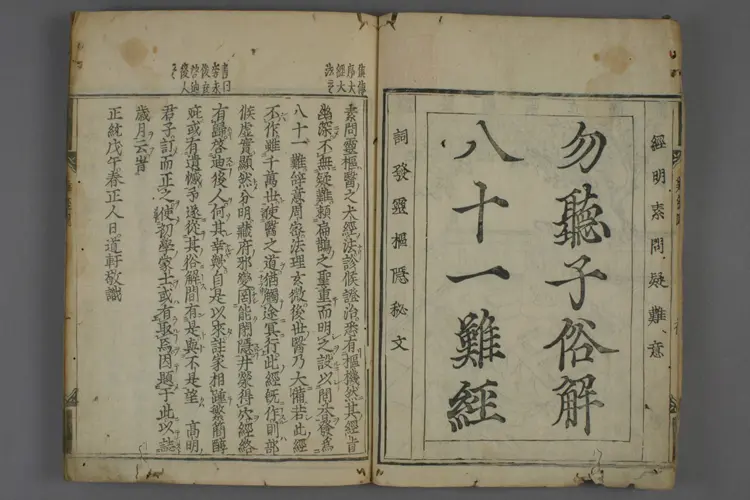 經明素問疑難意
勿聽子俗解
八十一難經
詞發靈樞隱秘文
素問靈樞醫之大經法診候證治悉有樞機然其經旨
幽深不無疑難賴扁鵲之聖重而明之設以問荅發爲
八十一難辞意周密法理玄微後世醫乃大備若此經
不作難千萬世使醫之道猶觸途冥行此經既作則部
候虚實顯然分明藏府邪變罔能閉隱井滎得穴經絡
有歸啓迪後人何其幸歟自是以來註家相踵繁簡醇
疵或有遺憾予遂從其俗解間有是與不是望 高明
君子訂而正之使初學蒙士或有取焉因題于此以誌
歲月云旹
正統戊午春正人日道軒敬識